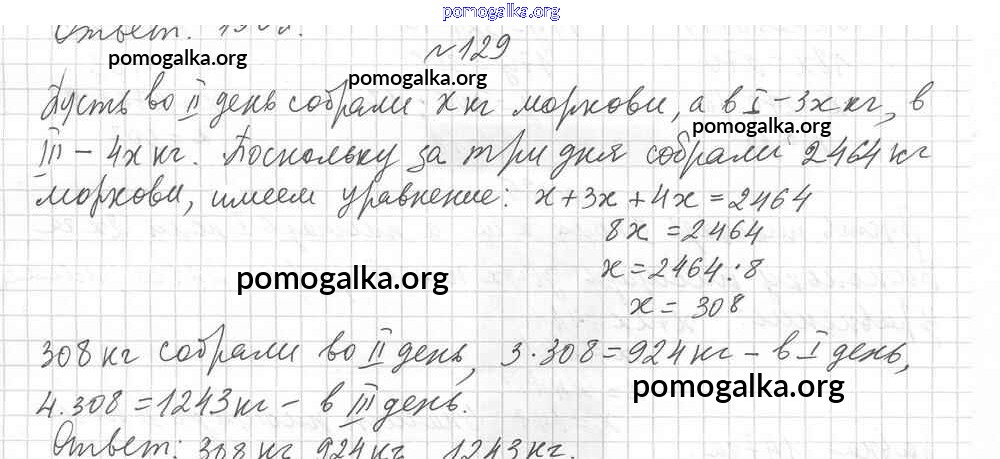 pomogalka.org
Ответ:
№129
pomogalka.org
pomogalka.org
Пусть во II день собрали x кг моркови, а в I - 3x кг, в
pomogalka.org
III - 4x кг. Поскольку за три дня собрали 2464 кг
моркови, имеем уравнение: x + 3x + 4x = 2464
8x = 2464
x = 2464 : 8
pomogalka.org
x = 308
308 кг собрали во II день, 3 · 308 = 924 кг - в I день,
pomogalka.org
4 . 308 = 1243 кг - в III день.
Ответ: 308 кг 924 кг 1243 кг.